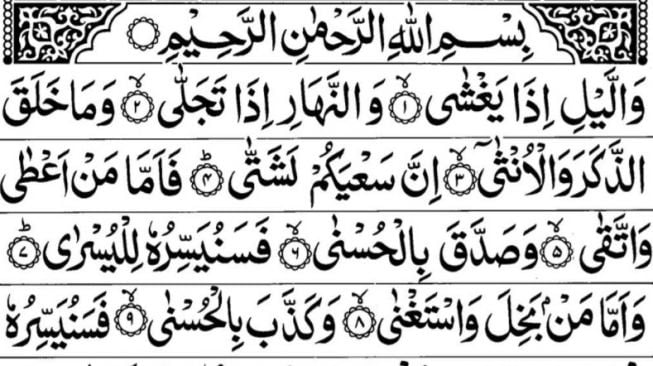 بِسْمِ اللهِ الرَّحْمٰنِ الرَّحِيْمِ
وَالَّيْلِ اِذَا يَغْشٰى ۙ﴿۱﴾ وَالنَّهَارِ اِذَا تَجَلّٰى ۙ﴿۲﴾ وَمَا خَلَقَ
الذَّكَرَ وَالْاُنْثٰۤى ۙ﴿۳﴾ اِنَّ سَعْيَكُمْ لَشَتّٰى ؕ﴿۴﴾ فَاَمَّا مَنْ اَعْطٰى
وَاتَّقٰى ۙ﴿۵﴾ وَصَدَّقَ بِالْحُسْنٰى ۙ﴿۶﴾ فَسَنُيَسِّرُهٗ لِلْيُسْرٰى ؕ﴿۷﴾
وَاَمَّا مَنْۢ بَخِلَ وَاسْتَغْنٰى ۙ﴿۸﴾ وَكَذَّبَ بِالْحُسْنٰى ۙ﴿۹﴾ فَسَنُيَسِّرُهٗ